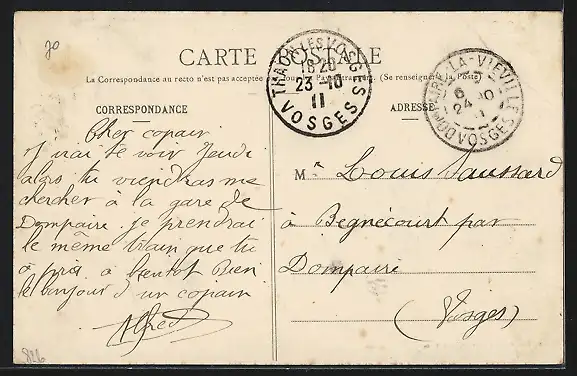 30
CARTE POSTALE
La Correspondance au recto n'est pas acceptée par tous les Pays étrangers. (Se renseigner à la Poste)
THAON-LES-VOSGES
18-20
23-10
11
VOSGES
DOMPAIRE-LA-VIÉVILLE
6
24-10
11
VOSGES
CORRESPONDANCE
ADRESSE
Cher copain
J'irai te voir Jeudi
alors tu viendras me
chercher à la gare de
Dompaire je prendrai
le même train que tu
a pris a bentot Bien
le bonjour d un copain
Alfred
Mr Louis Saussard
à Begnécourt par
Dompaire
(Vosges)
826